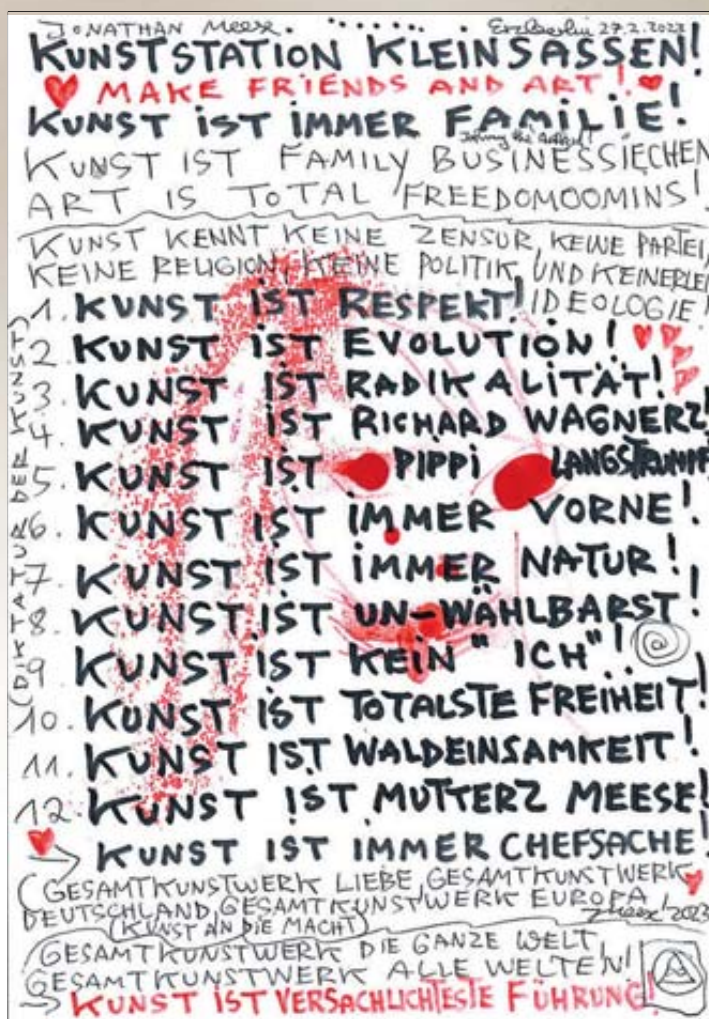 JONATHAN MEESE. 27.2.2023
KUNSTSTATION KLEINSASSEN!
MAKE FRIENDS AND ART!
KUNST IST IMMER FAMILIE!
KUNST IST FAMILY BUSINESSIECHEN
ART IS TOTAL FREEDOMOOMINS!
KUNST KENNT KEINE ZENSUR, KEINE PARTEI,
KEINE RELIGION, KEINE POLITIK, UND KEINERLEI
IDEOLOGIE!
1. KUNST IST RESPEKT!
2. KUNST IST EVOLUTION!
3. KUNST IST RADIKALITÄT!
4. KUNST IST RICHARD WAGNERZ!
5. KUNST IST PIPPI LANGSTRUMPF
6. KUNST IST IMMER VORNE!
7. KUNST IST IMMER NATUR!
8. KUNST IST UN-WÄHLBARST!
9. KUNST IST KEIN "ICH"!
10. KUNST IST TOTALSTE FREIHEIT!
11. KUNST IST WALDEINSAMKEIT!
12. KUNST IST MUTTERZ MEESE!
KUNST IST IMMER CHEFSACHE!
(DIKTATUR DER KUNST)
(GESAMTKUNSTWERK LIEBE, GESAMTKUNSTWERK
DEUTSCHLAND, GESAMTKUNSTWERK EUROPA
(KUNST AN DIE MACHT) JMeese! 2023
GESAMTKUNSTWERK DIE GANZE WELT,
GESAMTKUNSTWERK ALLE WELTEN!
KUNST IST VERSACHLICHTESTE FÜHRUNG!